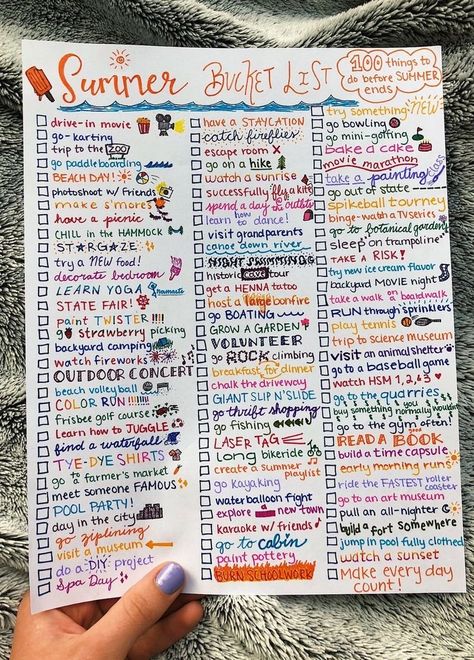 Summer BUCKET LIST
100 things to do before SUMMER ends
drive-in movie
go-karting
trip to the ZOO
go paddleboarding
BEACH DAY!
photoshoot w/ friends
make s'mores
have a picnic
CHILL in the HAMMOCK
STARGAZE
try a NEW food!
decorate bedroom
LEARN YOGA namaste
STATE FAIR!
paint TWISTER!
go strawberry picking
backyard camping
watch fireworks
OUTDOOR CONCERT
beach volleyball
COLOR RUN!!!!
frisbee golf course
Learn how to JUGGLE
find a waterfall
TYE-DYE SHIRTS
go a farmer's market
meet someone FAMOUS
POOL PARTY!
day in the city
go ziplining
visit a museum
do a DIY project
Spa Day
have a STAYCATION
catch fireflies
escape room
go on a hike
watch a sunrise
successfully fly a kite
spend a day @ outlets
learn how to dance!
visit grandparents
canoe down river
NIGHT SWIMMING
historic cave tour
get a HENNA tatoo
host a bonfire
go BOATING
GROW A GARDEN
VOLUNTEER
go ROCK climbing
breakfast for dinner
chalk the driveway
GIANT SLIP N'SLIDE
go thrift shopping
go fishing
LASER TAG
long bikeride
create a summer playlist
go kayaking
waterballoon fight
explore a new town
karaoke w/ friends
go to cabin
paint pottery
BURN SCHOOLWORK
try something NEW
go bowling
go mini-golfing
bake a cake
movie marathon
take a painting class
go out of state
spikeball tourney
binge-watch a TV series
go to botanical garden
sleep on trampoline
TAKE A RISK!
try new ice cream flavor
backyard MOVIE night
take a walk @ boardwalk
RUN through sprinklers
play tennis
trip to science museum
visit an animal shelter
go to a baseball game
watch HSM 1, 2, & 3
go to the quarries
buy something normally wouldn't
go to the gym often!
READ A BOOK
build a time capsule
early morning run
ride the FASTEST roller coaster
go to an art museum
pull an all-nighter
build a fort somewhere
jump in pool fully clothed
watch a sunset
Make every day count!